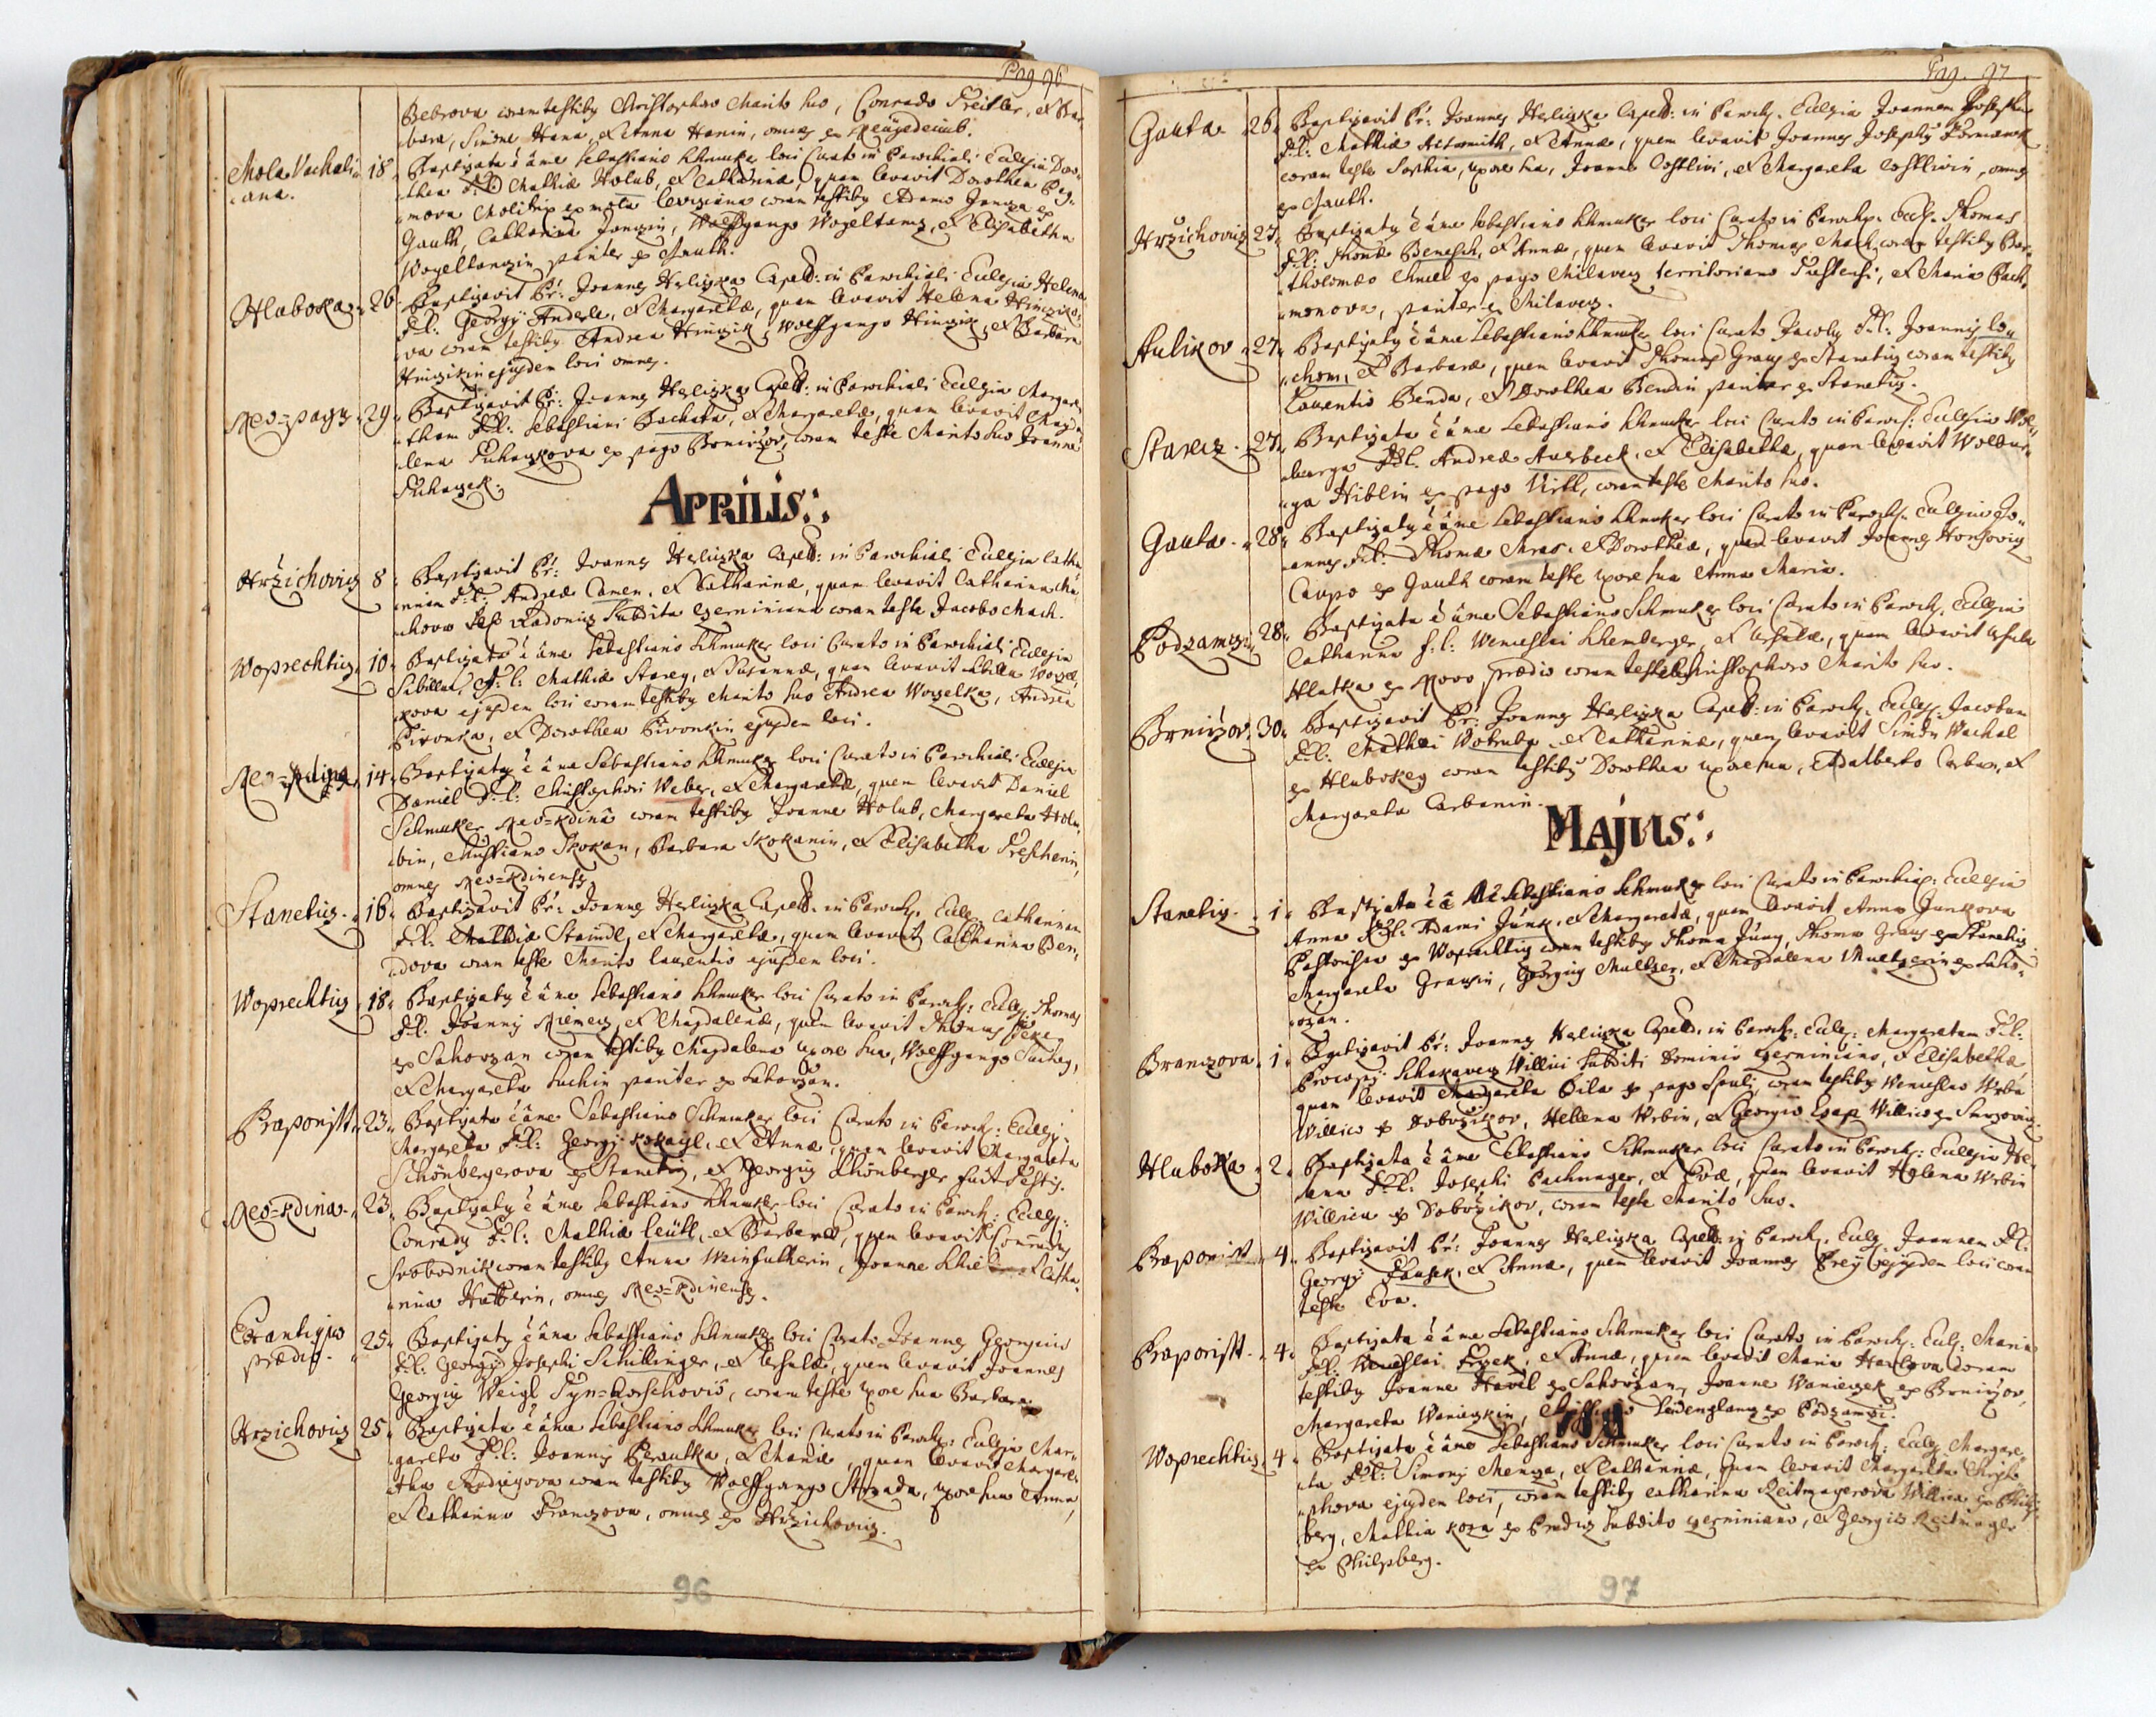 Pag 96
Bebrova coram testiby Christophoro Marito suo, Conrado Preitler, et Bar-
bara, Simone Hana, et Anna Hanin, omnes ex
Mola Vachali-
ana.
18 Baptizata e a me Sebastiano Schmuker loci Curato in Parochiali Ecclesia Doro-
thea F: L: Mathiæ Holub, et Catharinæ, quam levavit Dorothea
mova Molitrix ex mola coram testiby Adamo Janoza ex
Gauth, Catharina Janozin, Wolffgango Vogeltanz, et Elisabetha
Vogeltanzin pariter ex Gauth.
Hluboka 26 Baptizavit Pr: Joannes Herliczka Capell: in Parochiali Ecclesia Helena
F: L: Georgy Anderle, et Margaretæ, quam levavit Helena Hinczik-
ova coram testiby Andrea Hinczik, Wolffgango Hinczik, et Barbara
Hinczikin ejusdem loci omnes.
Neo-pagy 29 Baptizavit Pr: Joannes Herliczka Capell: in Parochiali Ecclesia Margare-
tham F: L: Sebastiani Bachata, et Margaretæ, quam levavit Magda-
lena Puhaczkova ex pago Brnirzov, coram teste Marito suo Joanne
Puhaczek.
APRILIS:
Hržichoviz 8 Baptizavit Pr: Joannes Herliczka Capell: in Parochiali Ecclesia Catha-
rinam F: L: Andreæ Camen, et Catharinæ, quam levavit Catharina Ma-
chova ex Radoniz Subdita Czerniniana coram teste Jacobo Mach.
Woprechtiz 10 Baptizata e a me Sebastiano Schmuker loci Curato in Parochiali Ecclesia
Sibilla F: L: Mathiæ Starey, et Susannæ, quam levavit Sibilla Woczel-
kova ejusdem loci coram testiby Marito suo Andrea Woczelka, Andrea
Pivonka, et Dorothea Pivonkin ejusdem loci.
14 Baptizaty e a me Sebastiano Schmuker loci Curato in Parochiali Ecclesia
Daniel F: L: Christophori Weber, et Margaretæ, quem levavit Daniel
Schmuker Neo-Kdina coram testiby Joanne Holub, Margareta Holu-
bin, Christiano Skokan, Barbara Skokanin, et Elisabetha
omnes Neo-Kdinensy
Stanetiz 16 Baptizavit Pr: Joannes Herliczka Capell: in Paroch: Eccl: Catharinam
F: L: Mathiæ Staindl, et Margaretæ, quam levavit Catharina Ben-
dova coram teste Marito Laurentio ejusdem loci.
Woprechtiz 18 Baptizaty e a me Sebastiano Schmuker loci Curato in Paroch: Eccl: Thomas
F: L: Joannis Niemecz, et Magdalenæ, quem levavit Thomas
ex Sahorzan coram testiby Magdalena uxore sua, Wolffgango Suchey,
et Margareta Suchin pariter ex Sahorzan.
Praporisst 23 Baptizata e a me Sebastiano Schmuker loci Curato in Paroch: Eccl:
Margareta F: L: Georgy Kokaisl, et Annæ, quam levavit Margareta
Schönbergerova ex Stanetiz, et Georgius Schönberger fuit Testis.
Neo-Kdina 23 Baptizaty e a me Sebastiano Schmuker loci Curato in Paroch: Eccl:
Conrady F: L: Mathiæ Leütl, et Barbaræ, quem levavit Conradus
Svobodnik coram testiby Anna Weinfutherin, Joanne et Catha-
rina Hutterin, omnes Neo-Kdinensy.
Ex antiquo
prædio
25 Baptizaty e a me Sebastiano Schmuker loci Curato Joannes Georgius
F: L: Georgy Josephi Schillinger, et Ursulæ, quem levavit Joannes
Georgius Weigl Tyn-Horschovio, coram teste uxore sua Barbara.
Hrzichoviz 25 Baptizata e a me Sebastiano Schmuker loci Curato in Paroch: Ecclesia Mar-
gareta F: L: Joannis Peroutka, et Mariæ, quam levavit Margare-
tha coram testiby Wolffgango Strada, uxore sua Anna,
et Catharina Franczova, omnes ex Hrzichoviz.
96
Pag. 97
Gauta 26 Baptizavit Pr: Joannes Herliczka Capell: in Paroch: Ecclesia Joannem Josephum
F: L: Mathiæ Altsmith, et Annæ, quem levavit Joannes Josephus Formanek
coram teste Sophia, uxore sua, Joanne Costlivi, et Margareta Costlivin, omnes
ex Gauth.
Hržichoviz 27 Baptizaty e a me Sebastiano Schmuker loci Curato in Paroch: Eccl: Thomas
F: L: Thomæ Benesch, et Annæ, quem levavit Thomas Mach, coram testiby Bar-
tholomæo Chmel ex pago Milavecz territoriano, et Maria Pach-
monova, pariter ex Milavecz.
Aulikov 27 Baptizaty e a me Sebastiano Schmuker loci Curato Jacoby F: L: Joannis Lo-
chom, et Barbaræ, quem levavit Thomas Graus ex Stanetiz coram testiby
Laurentio Benda, et Dorothea Bendin pariter ex Stanetiz.
Starecz 27 Baptizata e a me Sebastiano Schmuker loci Curato in Paroch: Ecclesia Wal-
burga F: L: Andreæ Auerbeck, et Elisabethæ, quam levavit Walbur-
ga Hiblin ex pago Virtl, coram teste Marito suo.
Gauta 28 Baptizaty e a me Sebastiano Schmuker loci Curato in Paroch: Ecclesia Jo-
annes F: L: Thomæ Mraz, et Dorotheæ, quem levavit Joannes Honsoviz
Caupo ex Gauth coram teste uxore sua Anna Maria.
Podzamczy 28 Baptizata e a me Sebastiano Schmuker loci Curato in Paroch: Ecclesia
Catharina F: L: Wenceslai Schemberger, et Ursulæ, quam levavit Ursula
Hlatka ex Novo prædio coram teste Christophoro Marito suo.
Brnirzov 30 Baptizavit Pr: Joannes Herliczka Capell: in Paroch: Eccles: Jacobum
F: L: Mathæi Wotruba, et Catharinæ, quem levavit Simon Wachal
ex Hlubokey coram testiby Dorothea uxore sua, Adalberto Carban, et
Margareta Carbanin.
MAJUS:
Stanetiz 1 Baptizata e a me Sebastiano Schmuker loci Curato in Parochia: Ecclesia
Anna F: L: Adami Junk, et Margaretæ, quam levavit Anna Gunkova
ex Woprechtiz coram testiby Thoma Jung, Thoma Graus ex Stanetiz
Margareta Grausin, Georgius Multzer, et Magdalena Multzerin ex Saho-
rzan.
Branczova 1 Baptizavit Pr: Joannes Herliczka Capell: in Paroch: Eccle: Margaretam F: L:
Procopy Schakavecz Willici Subditi Dominio Czerniniano, et Elisabethæ,
quam levavit Margareta Bila ex pago Spuli coram testiby Wenceslao Wrba
Willico ex Dobrzikov, Hellena Wrbin, et Georgio Czap Willico ex
Hluboka 2 Baptizata e a me Sebastiano Schmuker loci Curato in Paroch: Ecclesia He-
lena F: L: Josephi Pachmayer, et Evæ, quam levavit Helena Wrbin
Willica ex Dobrzikov, coram teste Marito suo.
Praporisst 4 Baptizavit Pr: Joannes Herliczka Capell: in Paroch: Eccle: Joannem F: L:
Georgy Faussek, et Annæ, quem levavit Joannes Prey ejusdem loci coram
teste Eva.
Praporisst 4 Baptizata e a me Sebastiano Schmuker loci Curato in Paroch: Eccle: Maria
F: L: Wenceslai, et Annæ, quam levavit Maria Havlova coram
testiby Joanne Havel ex Sahorzan, Joanne Waniczek ex Brnirzov,
Margareta Waniczkin, Seidenglanz ex Podzamczi.
Woprechtiz 4 Baptizata e a me Sebastiano Schmuker loci Curato in Paroch: Eccle: Margare-
ta F: L: Simonis Mencza, et Catharinæ, quam levavit Margareta Christo-
phova ejusdem loci, coram testiby Catharina Reitmayerova Willica ex Philips-
berg, Mathia Koza ex Subdito Czerniniano, et Georgio Reitmayer
ex Philipsberg.
97